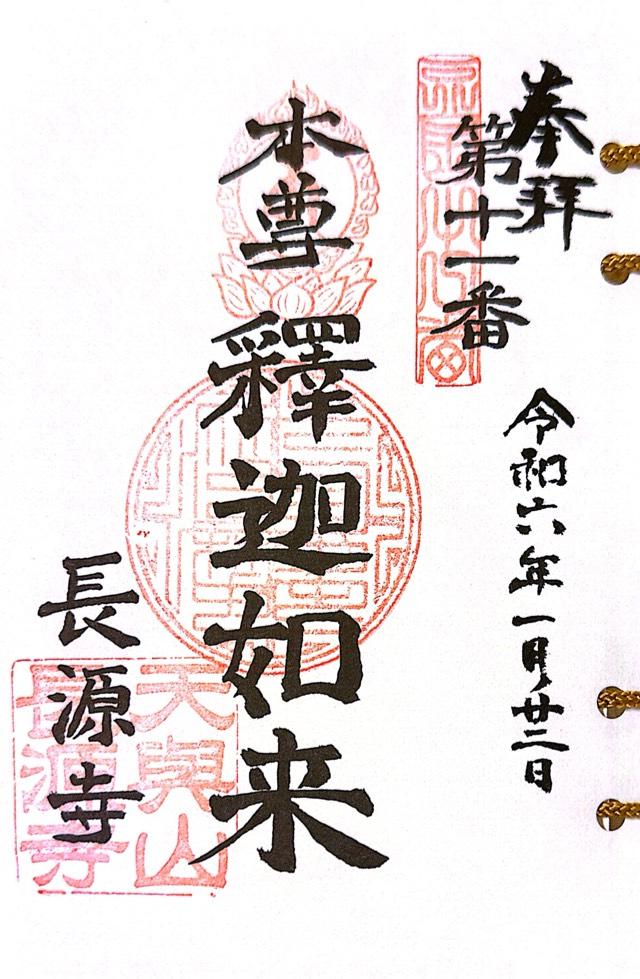 奉拝
第十一番
令和六年一月廿二日
本尊
釋迦如来
長源寺
天與山
長源寺